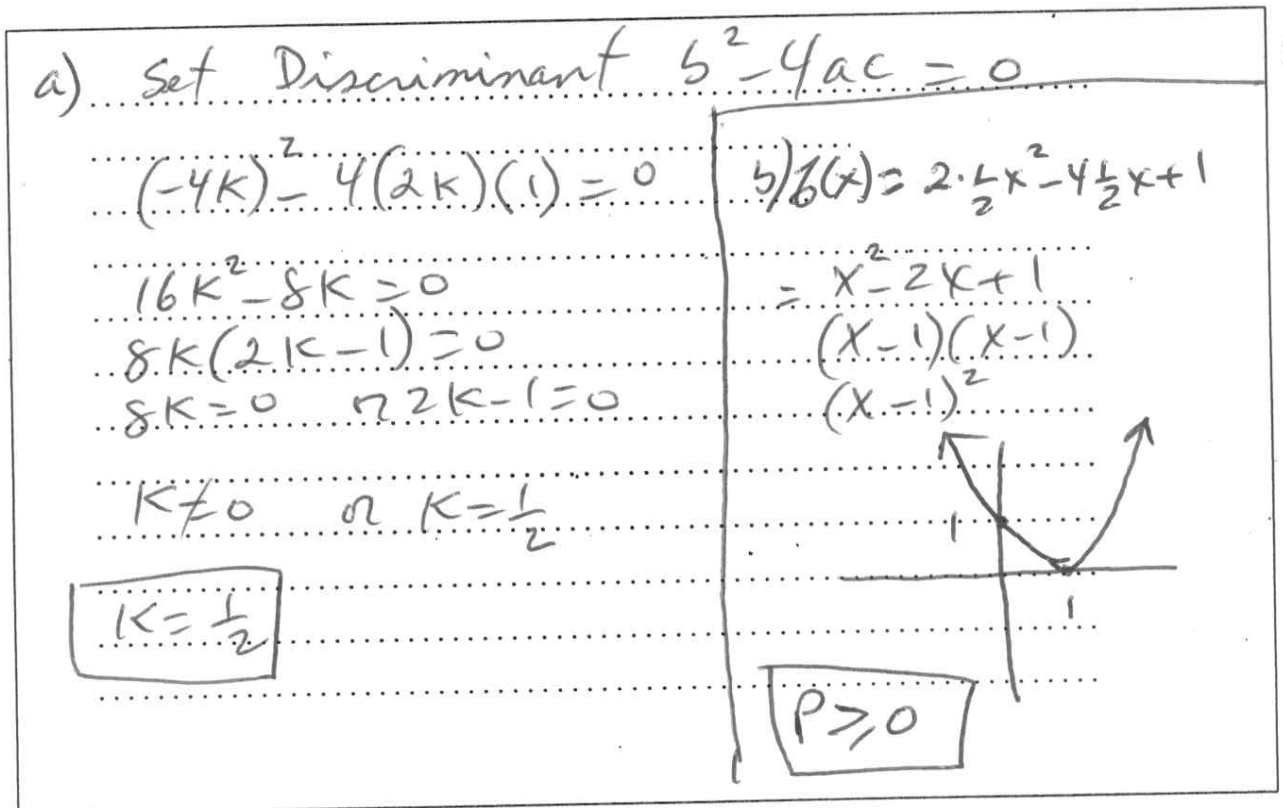 a) Set Discriminant b²-4ac = 0
(-4K)² - 4(2K)(1) = 0
16K² - 8K = 0
8K(2K-1) = 0
8K=0 or 2K-1=0
K≠0 or K=1/2
K=1/2
b) f(x) = 2·1/2x²-4 1/2x+1
= x²-2x+1
(x-1)(x-1)
(x-1)²
1
1
P≥0